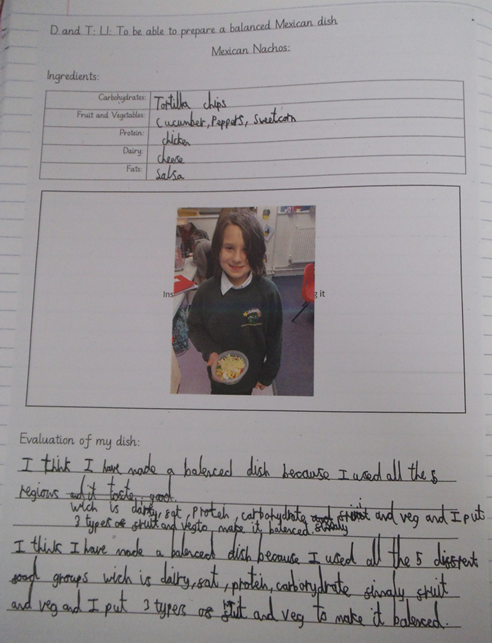 D and T: LI: To be able to prepare a balanced Mexican dish
Mexican Nachos:
Ingredients:
Carbohydrates: Tortilla chips
Fruit and Vegetables: Cucumber, Peppers, Sweetcorn
Protein: chicken
Dairy: cheese
Fats: Salsa
Ins
g it
Evaluation of my dish:
I think I have made a balenced dish because I used all the 5
regions and it taste good.
wich is dairy, fat, protein, carbohydrate and veg and I put
3 types of fruit and veg to make it balenced
I think I have made a balenced dish because I used all the 5 different
food groups wich is dairy, fat, protein, carbohydrate finaly fruit
and veg and I put 3 types of fruit and veg to make it balenced.